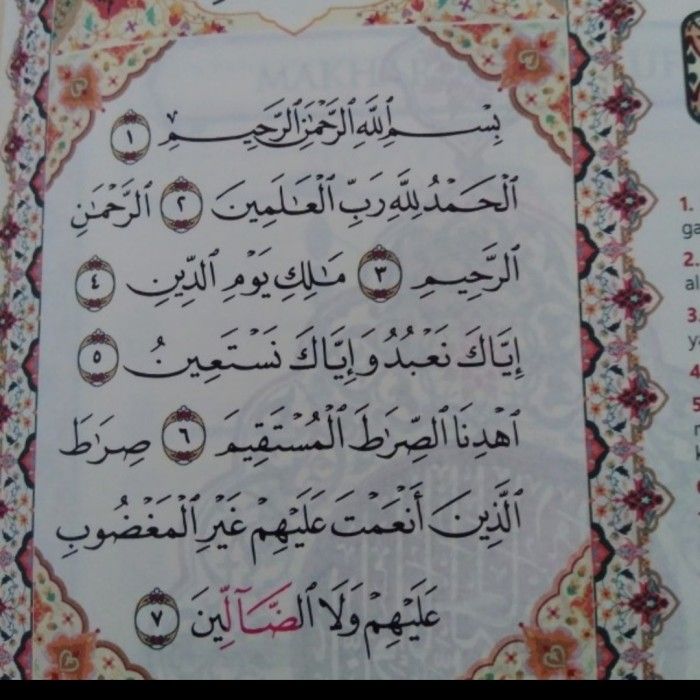 بِسْمِ ٱللَّهِ ٱلرَّحْمَٰنِ ٱلرَّحِيمِ ١
ٱلْحَمْدُ لِلَّهِ رَبِّ ٱلْعَٰلَمِينَ ٢ ٱلرَّحْمَٰنِ
ٱلرَّحِيمِ ٣ مَٰلِكِ يَوْمِ ٱلدِّينِ ٤
إِيَّاكَ نَعْبُدُ وَإِيَّاكَ نَسْتَعِينُ ٥
ٱهْدِنَا ٱلصِّرَٰطَ ٱلْمُسْتَقِيمَ ٦ صِرَٰطَ
ٱلَّذِينَ أَنْعَمْتَ عَلَيْهِمْ غَيْرِ ٱلْمَغْضُوبِ
عَلَيْهِمْ وَلَا ٱلضَّآلِّينَ ٧
1.
2.
3.
4
5